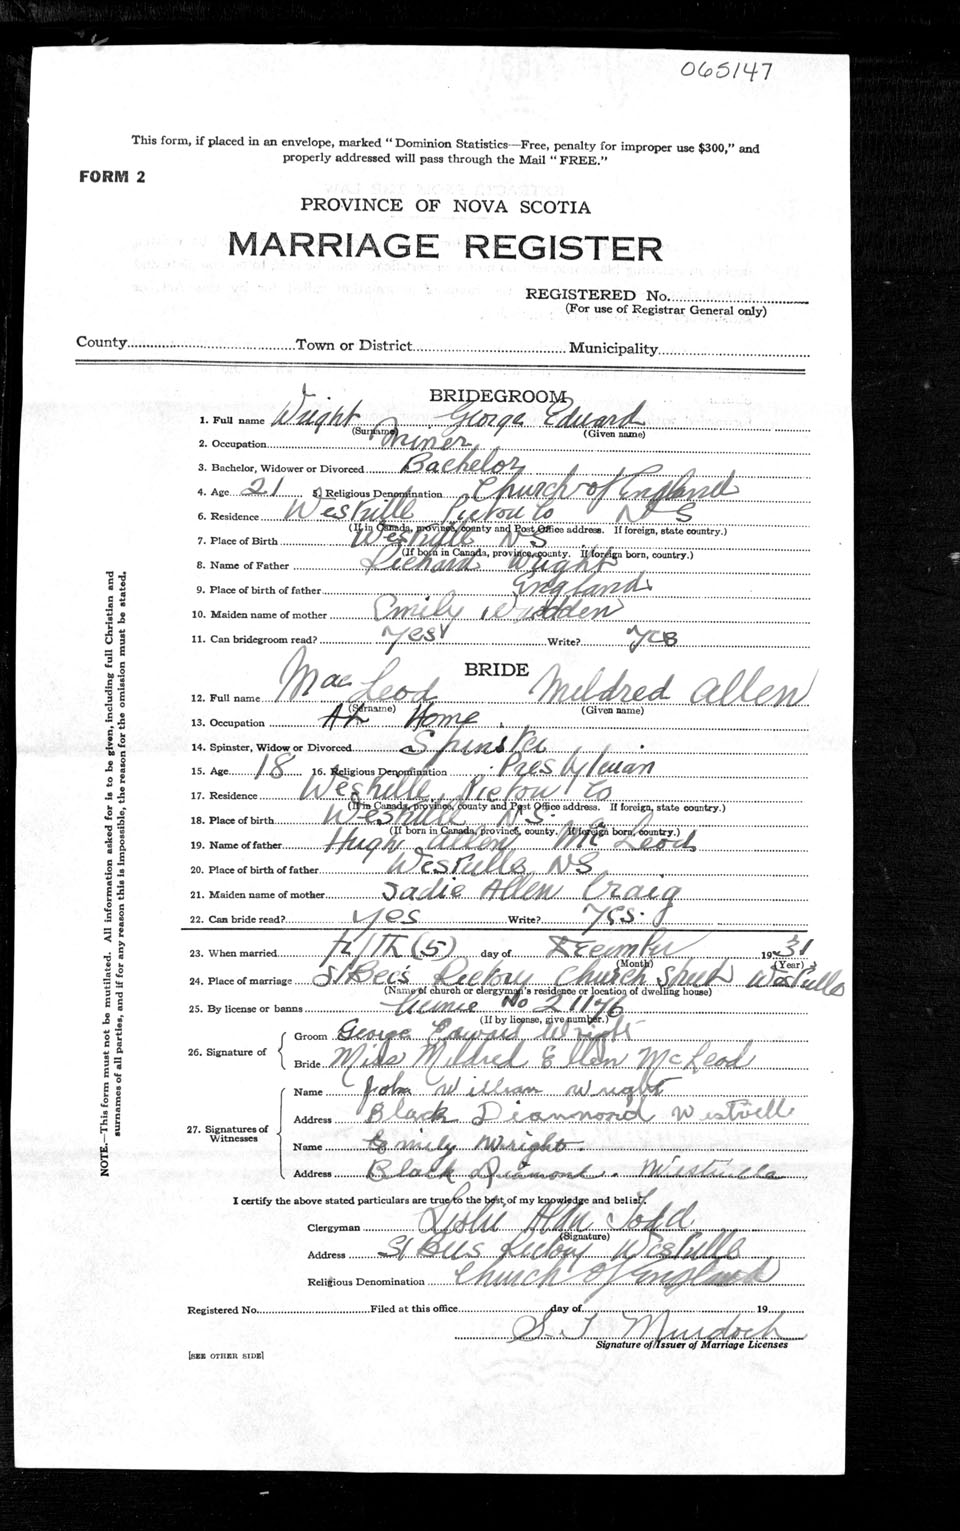 065147
This form, if placed in an envelope, marked "Dominion Statistics—Free, penalty for improper use $300," and
properly addressed will pass through the Mail "FREE."
FORM 2
PROVINCE OF NOVA SCOTIA
MARRIAGE REGISTER
REGISTERED No.
(For use of Registrar General only)
County Town or District Municipality
BRIDEGROOM
1. Full name Wright George Edward
(Surname) (Given name)
2. Occupation Miner
3. Bachelor, Widower or Divorced Bachelor
4. Age 21 5. Religious Denomination Church of England
6. Residence Westville Pictou Co NS
(If in Canada, province, county and Post Office address. If foreign, state country.)
7. Place of Birth Westville NS
(If born in Canada, province, county. If foreign born, country.)
8. Name of Father Richard Wright
9. Place of birth of father England
10. Maiden name of mother Emily
11. Can bridegroom read? Yes Write? Yes
BRIDE
12. Full name MacLeod Mildred Allen
(Surname) (Given name)
13. Occupation At Home
14. Spinster, Widow or Divorced Spinster
15. Age 18 16. Religious Denomination Presbyterian
17. Residence Westville Pictou Co
(If in Canada, province, county and Post Office address. If foreign, state country.)
18. Place of birth Westville N.S.
(If born in Canada, province, county. If foreign born, country.)
19. Name of father Hugh Allen McLeod
20. Place of birth of father Westville NS
21. Maiden name of mother Sadie Allen Craig
22. Can bride read? Yes Write? Yes.
23. When married (5) day of December 1931
(Month) (Year)
24. Place of marriage St Bee's Rectory Church Street Westville
(Name of church or clergyman's residence or location of dwelling house)
25. By license or banns License No 21176
(If by license, give number.)
26. Signature of
Groom George Edward Wright
Bride Miss Mildred Ellen McLeod
27. Signatures of Witnesses
Name John William Wright
Address Black Diamond Westville
Name Emily Wright.
Address Black Diamond. Westville
I certify the above stated particulars are true to the best of my knowledge and belief.
Clergyman Leslie Allen Todd
(Signature)
Address St Bees Rectory Westville
Religious Denomination Church of England
Registered No. Filed at this office day of 19
S. T. Murdoch
Signature of Issuer of Marriage Licenses
[SEE OTHER SIDE]
NOTE.—This form must not be mutilated. All information asked for is to be given, including full Christian and
surnames of all parties, and if for any reason this is impossible, the reason for the omission must be stated.